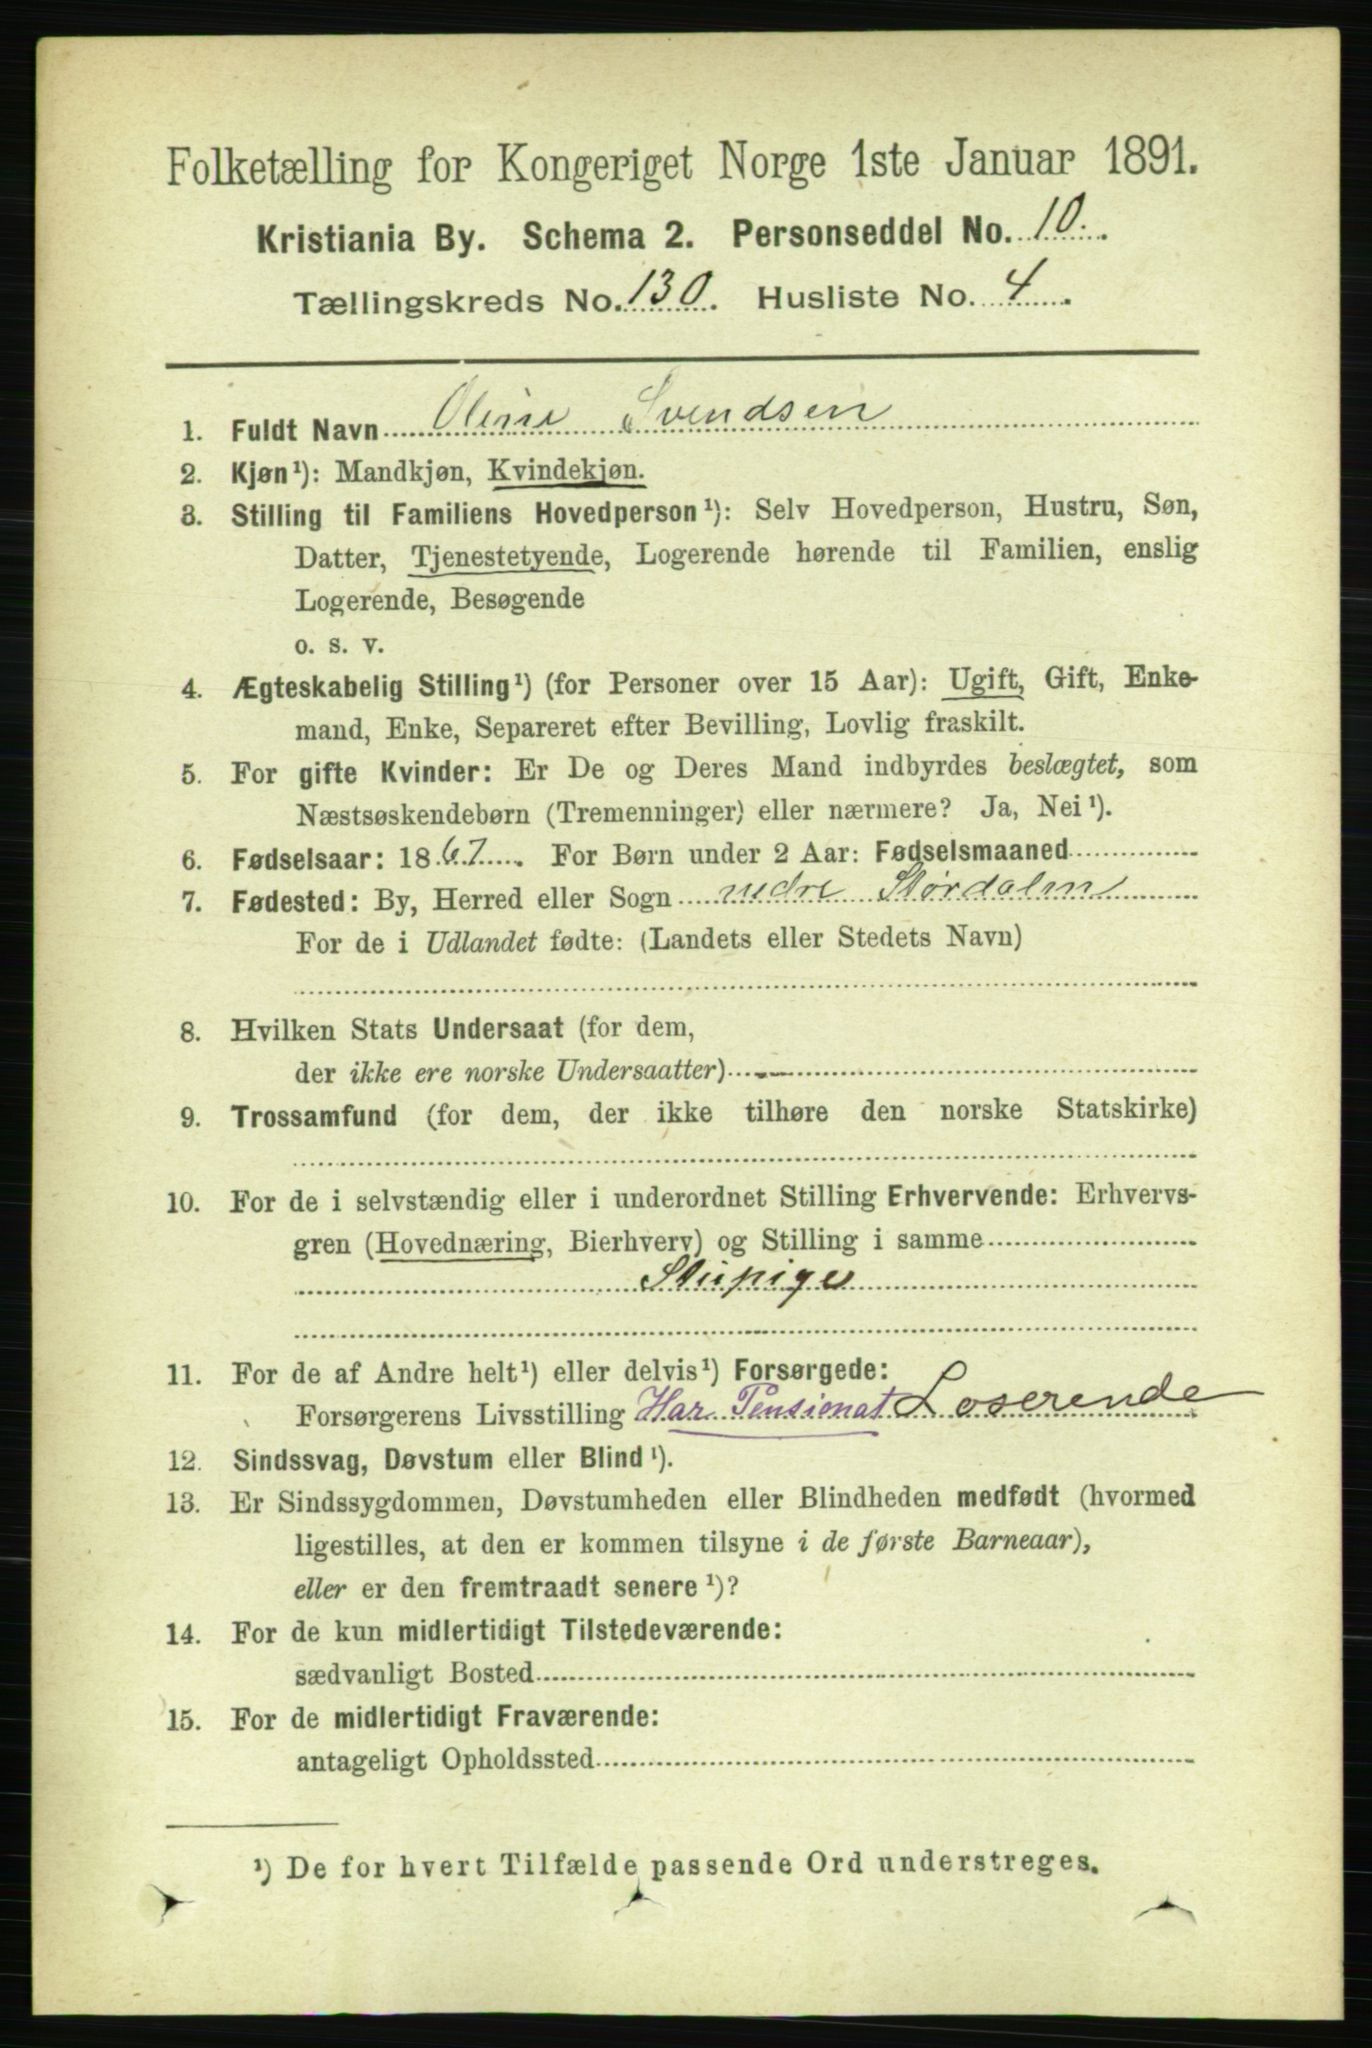 Folketælling for Kongeriget Norge 1ste Januar 1891.
Kristiania By. Schema 2. Personseddel No. 10.
Tællingskreds No. 130. Husliste No. 4.
1. Fuldt Navn Oline Svendsen
2. Kjøn¹): Mandkjøn, Kvindekjøn.
3. Stilling til Familiens Hovedperson¹): Selv Hovedperson, Hustru, Søn,
Datter, Tjenestetyende, Logerende hørende til Familien, enslig
Logerende, Besøgende
o. s. v.
4. Ægteskabelig Stilling¹) (for Personer over 15 Aar): Ugift, Gift, Enke-
mand, Enke, Separeret efter Bevilling, Lovlig fraskilt.
5. For gifte Kvinder: Er De og Deres Mand indbyrdes beslægtet, som
Næstsøskendebørn (Tremenninger) eller nærmere? Ja, Nei¹).
6. Fødselsaar: 1867. For Børn under 2 Aar: Fødselsmaaned
7. Fødested: By, Herred eller Sogn nedre Størdalen
For de i Udlandet fødte: (Landets eller Stedets Navn)
8. Hvilken Stats Undersaat (for dem,
der ikke ere norske Undersaatter)
9. Trossamfund (for dem, der ikke tilhøre den norske Statskirke)
10. For de i selvstændig eller i underordnet Stilling Erhvervende: Erhvervs-
gren (Hovednæring, Bierhverv) og Stilling i samme
Stupige
11. For de af Andre helt¹) eller delvis¹) Forsørgede:
Forsørgerens Livsstilling Har Pensionat Loserende
12. Sindssvag, Døvstum eller Blind¹).
13. Er Sindssygdommen, Døvstumheden eller Blindheden medfødt (hvormed
ligestilles, at den er kommen tilsyne i de første Barneaar),
eller er den fremtraadt senere¹)?
14. For de kun midlertidigt Tilstedeværende:
sædvanligt Bosted
15. For de midlertidigt Fraværende:
antageligt Opholdssted
¹) De for hvert Tilfælde passende Ord understreges.